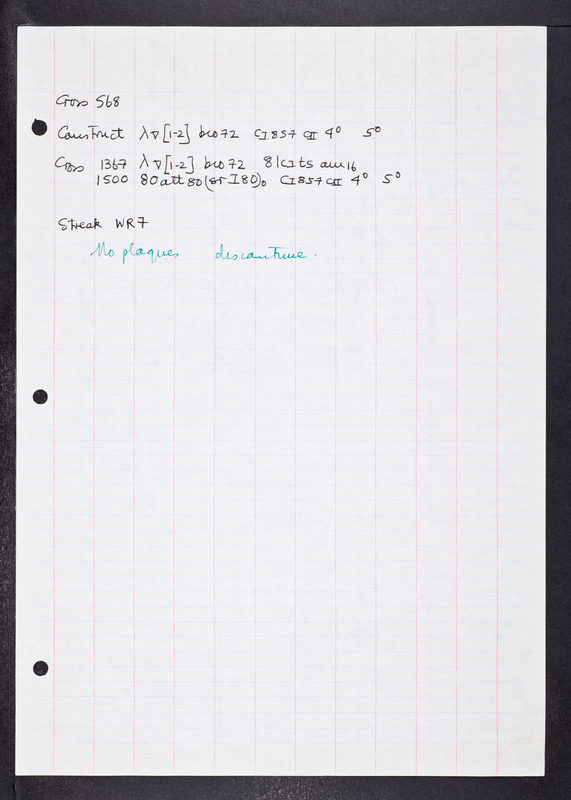 Cross 568
Construct λ∇[1-2] bio72 cI857 cII 4⁰ 5⁰
Cross 1367 λ∇[1-2] bio72 81cIts am16
1500 80att80(srI80)0 cI857 cII 4⁰ 5⁰
Streak WR7
No plaques discontinue.